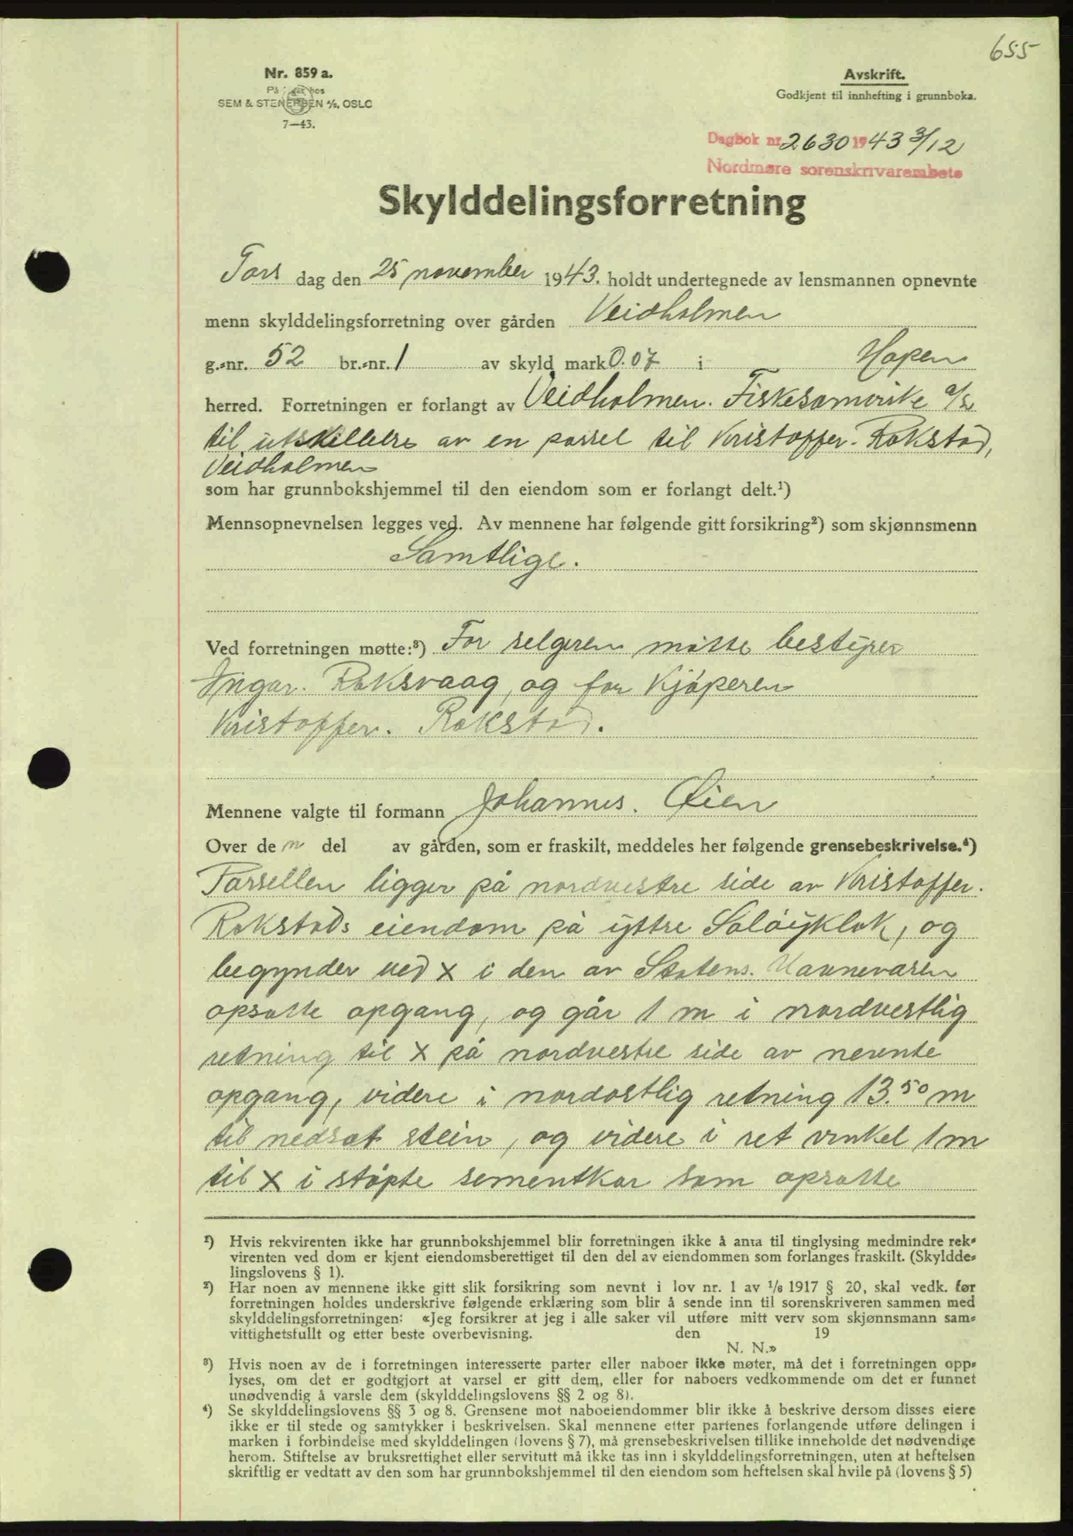 655
Nr. 859 a.
På lager hos
SEM & STENERSEN A/S, OSLO
7—43.
Avskrift.
Godkjent til innhefting i grunnboka.
Dagbok nr. 2630 1943 3/12
Nordmøre sorenskrivarembete
Skylddelingsforretning
Tors dag den 25 november 1943. holdt undertegnede av lensmannen opnevnte
menn skylddelingsforretning over gården Veidholmen
g.-nr. 52 br.-nr. 1 av skyld mark 0.07 i Hopen
herred. Forretningen er forlangt av Veidholmen. Fiskesamvirke a/s
til utskillelse av en parsel til Kristoffer. Rokstad,
Veidholmen
som har grunnbokshjemmel til den eiendom som er forlangt delt.¹)
Mennsopnevnelsen legges ved. Av mennene har følgende gitt forsikring²) som skjønnsmenn
Samtlige.
Ved forretningen møtte:³) For selgeren møtte bestyrer
Ingar. Roksvaag, og for Kjöperen
Kristoffer. Rokstad.
Mennene valgte til formann Johannes. Øien
Over de n del av gården, som er fraskilt, meddeles her følgende grensebeskrivelse.⁴)
Parsellen ligger på nordvestre side av Kristoffer.
Rokstads eiendom på yttre Saløyklak, og
begynder ved X i den av Statens. Havnevæsen
opsatte opgang, og går 1 m i nordvestlig
retning til X på nordvestre side av nevnte
opgang, videre i nordostlig retning 13.50 m
til nedsat stein, og videre i ret vinkel 1 m
til X i støpte sementkar som opsatte
¹) Hvis rekvirenten ikke har grunnbokshjemmel blir forretningen ikke å anta til tinglysing medmindre rek-
virenten ved dom er kjent eiendomsberettiget til den del av eiendommen som forlanges fraskilt. (Skyldde-
lingslovens § 1).
²) Har noen av mennene ikke gitt slik forsikring som nevnt i lov nr. 1 av 1/6 1917 § 20, skal vedk. før
forretningen holdes underskrive følgende erklæring som blir å sende inn til sorenskriveren sammen med
skylddelingsforretningen: «Jeg forsikrer at jeg i alle saker vil utføre mitt verv som skjønnsmann sam-
vittighetsfullt og etter beste overbevisning. den 19
N. N.»
³) Hvis noen av de i forretningen interesserte parter eller naboer ikke møter, må det i forretningen opp-
lyses, om det er godtgjort at varsel er gitt dem, eller for naboers vedkommende om det er funnet
unødvendig å varsle dem (skylddelingslovens §§ 2 og 8).
⁴) Se skylddelingslovens §§ 3 og 8. Grensene mot naboeiendommer blir ikke å beskrive dersom disses eiere
ikke er til stede og samtykker i beskrivelsen. Skal mennene etter partenes forlangende utføre delingen i
marken i forbindelse med skylddelingen (lovens § 7), må grensebeskrivelsen tillike inneholde det nødvendige
herom. Stiftelse av bruksrettighet eller servitutt må ikke tas inn i skylddelingsforretningen, uten at heftelsen
skriftlig er vedtatt av den som har grunnbokshjemmel til den eiendom som heftelsen skal hvile på (lovens § 5)